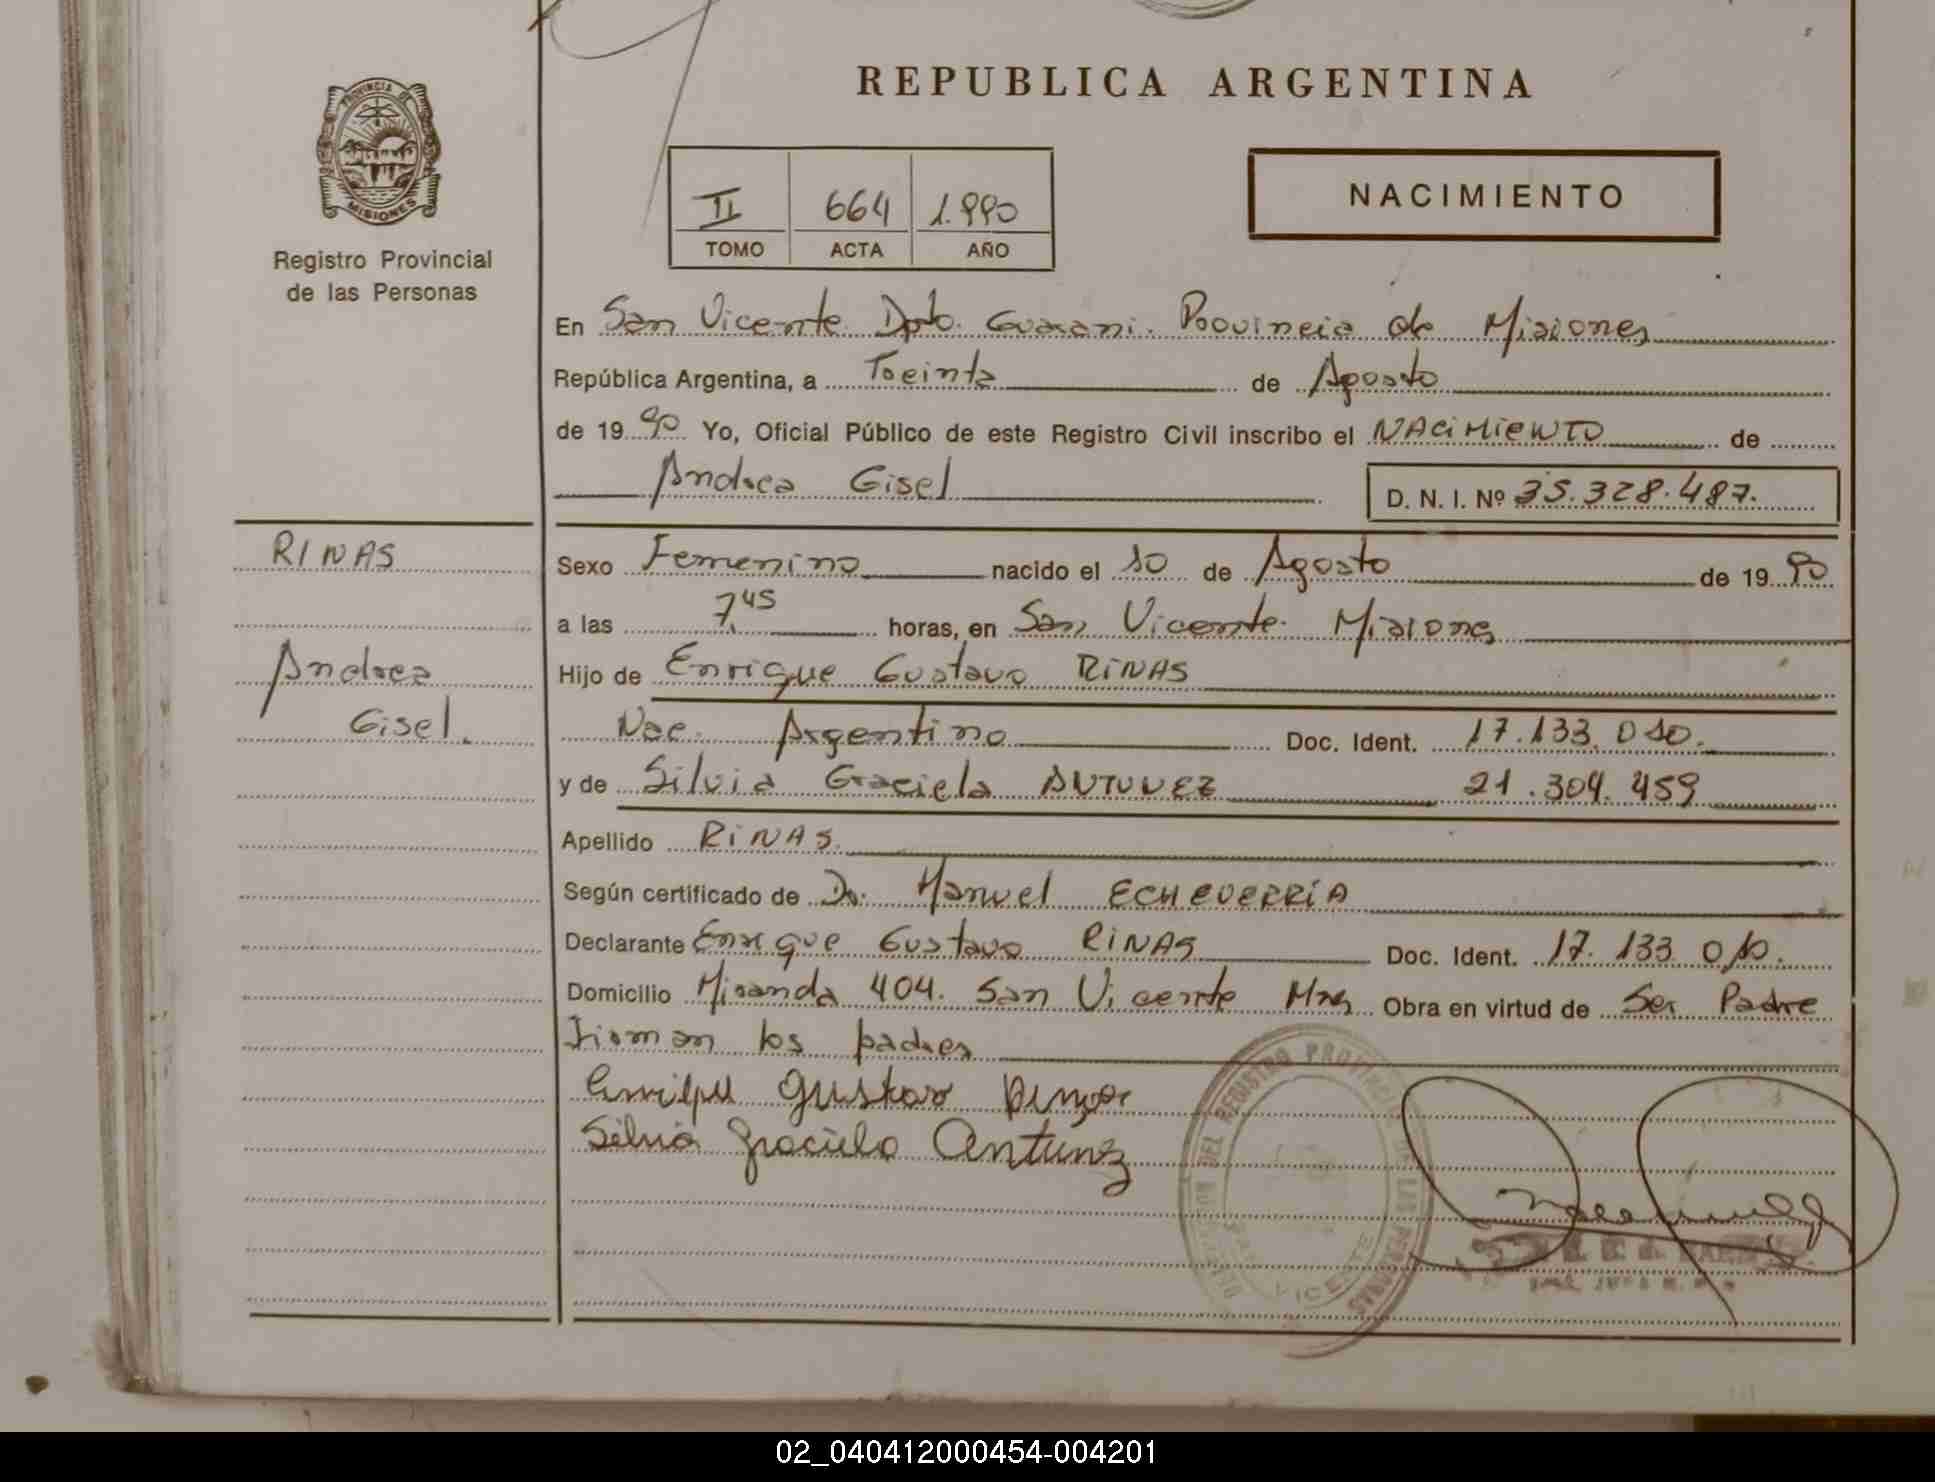 REPUBLICA ARGENTINA
PROVINCIA DE MISIONES
Registro Provincial
de las Personas
II 664 1.990
TOMO ACTA AÑO
NACIMIENTO
En San Vicente Dpto. Guarani. Provincia de Misiones
República Argentina, a Treinta de Agosto
de 1990 Yo, Oficial Público de este Registro Civil inscribo el NACIMIENTO de
Andrea Gisel
D. N. I. Nº 35.328.487.
RINAS
Andrea
Gisel.
Sexo Femenino nacido el 10 de Agosto de 1990
a las 7,45 horas, en San Vicente. Misiones
Hijo de Enrique Gustavo RINAS
Nac. Argentino Doc. Ident. 17.133.010.
y de Silvia Graciela ANTUNEZ 21.304.459
Apellido RINAS.
Según certificado de Dr. Manuel ECHEVERRÍA
Declarante Enrique Gustavo RINAS Doc. Ident. 17.133 010.
Domicilio Miranda 404. San Vicente Mnes Obra en virtud de Ser Padre
Firman los padres
Gustavo
Silvia Graciela Antunez
DEL REGISTRO PROVINCIAL DE LAS PERSONAS
SAN VICENTE
02_040412000454-004201